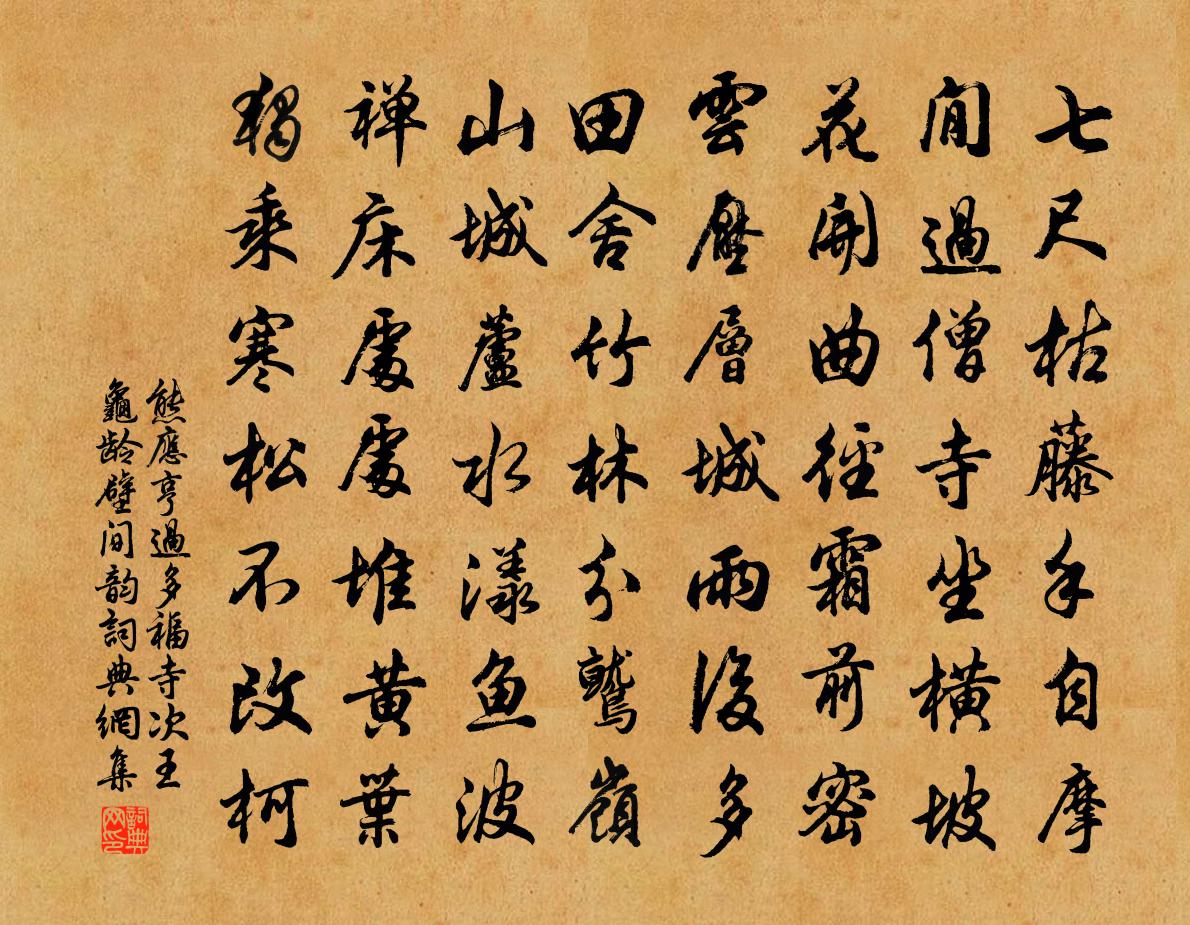 七尺枯藤手自摩
閒過僧寺坐橫坡
花開曲徑霜前密
雲壓層城雨後多
田舍竹林分鷲嶺
山城蘆水漾魚波
禅床處處堆黃葉
獨乘寒松不改柯
熊應亨過多福寺次王
龜龄壁间韵詞典網集
詞典网印